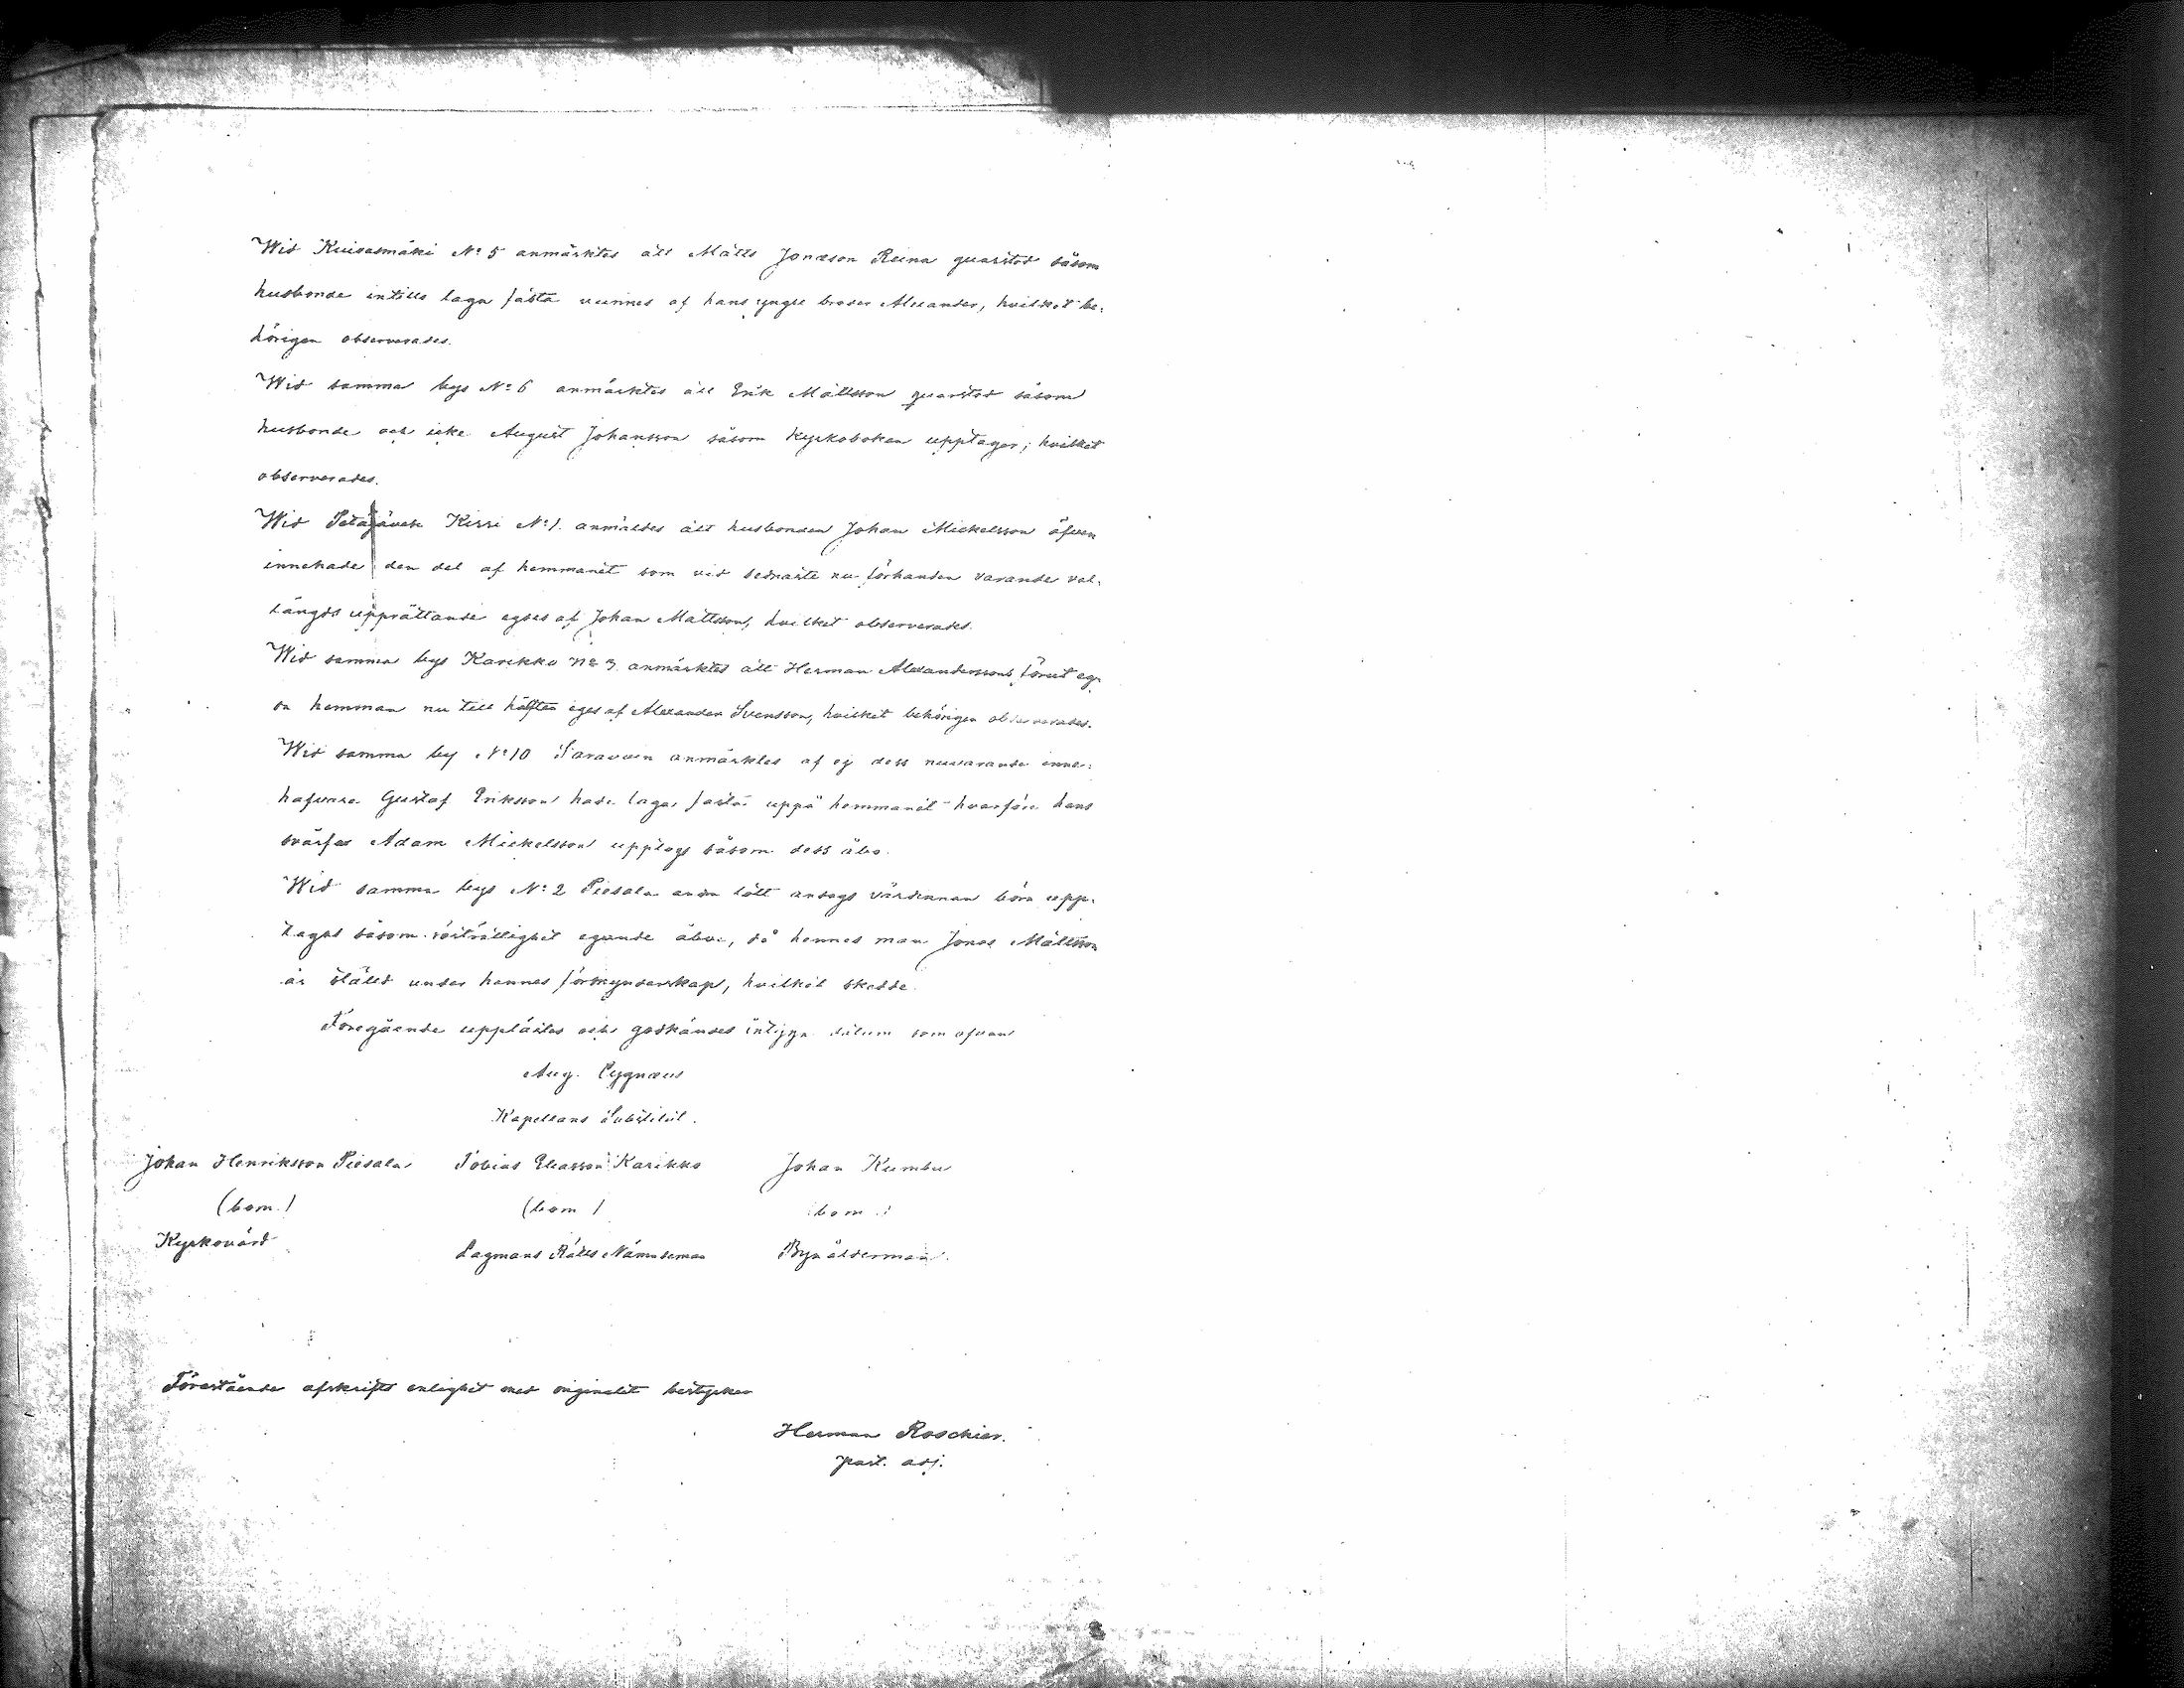 Wid Kuisasmäki No 5 anmärktes att Matts Jonasson Reina quarstod såsom
husbonde intills laga fasta vunnes af hans yngre broder Alexander, hvilket be-
hörigen observerades.
Wid samma bys No 6 anmärktes att Erik Mattsson quarstod såsom
husbonde och icke August Johansson såsom Kyrkoboken upptager; hvilket
observerades.
Wid Petäjävesi Kirri No 1. anmäldes att husbonden Johan Mickelsson äfven
innehade den del af hemmanet som vid sednaste nu förhanden varande val-
längds upprättande egdes af Johan Mattsson, hvilket observerades.
Wid samma bys Karikko No 3 anmärktes att Herman Alexanderssons förut eg-
da hemman nu till hälften eges af Alexander Svensson, hvilket behörigen observerades.
Wid samma by No 10 anmärktes af ej dess nuvarande inne-
hafvare Gustaf Eriksson hade laga fasta uppå hemmanet hvarföre hans
svärfar Adam Mickelsson upptogs såsom dess åbo.
Wid samma bys No 2 Piesala andra lott ansågs värdinnan böra upp-
tagas såsom rösträttighet egande åboe, då hennes man Jonas Mattsson
är ställd under hennes förmynderskap, hvilket skedde.
Föregående upplästes och godkändes intyga datum som ofvan
Aug. Cygnæus
Kapellans Substitut.
Johan Henriksson Piesala Tobias Eliasson Karikko Johan Kumbu
(bom.) (bom) (bom.)
Kyrkovärd Lagmans Rätts Nämndeman Byaålderman.
Förestående afskrifts enlighet med originalet bestyrker
Herman Roschier.
past. adj.